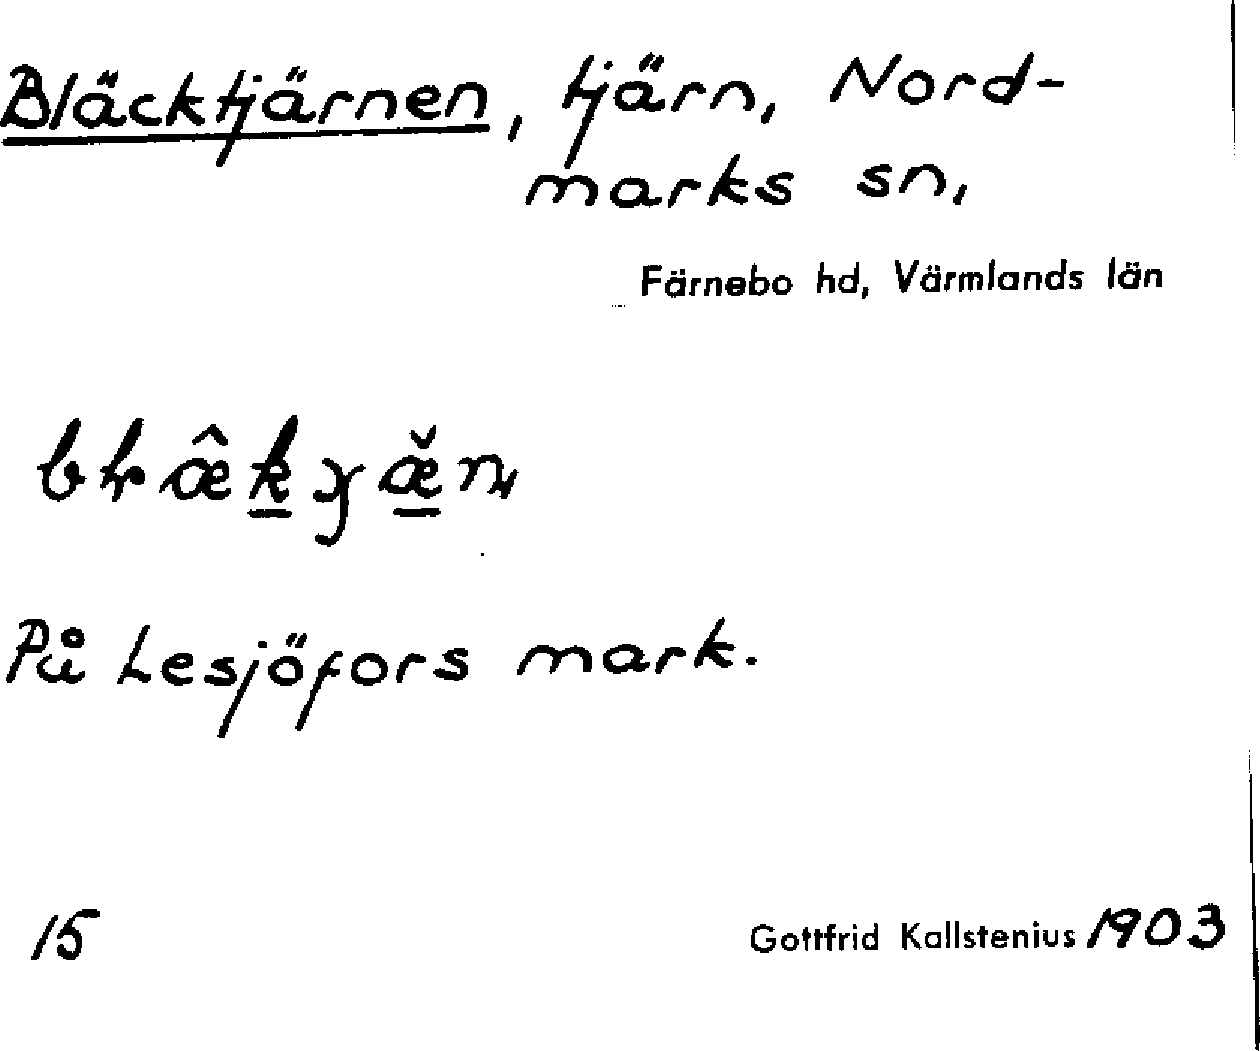 Bläcktjärnen, tjärn, Nord-
marks sn,
Färnebo hd, Värmlands län
På Lesjöfors mark.
15
Gottfrid Kallstenius 1903